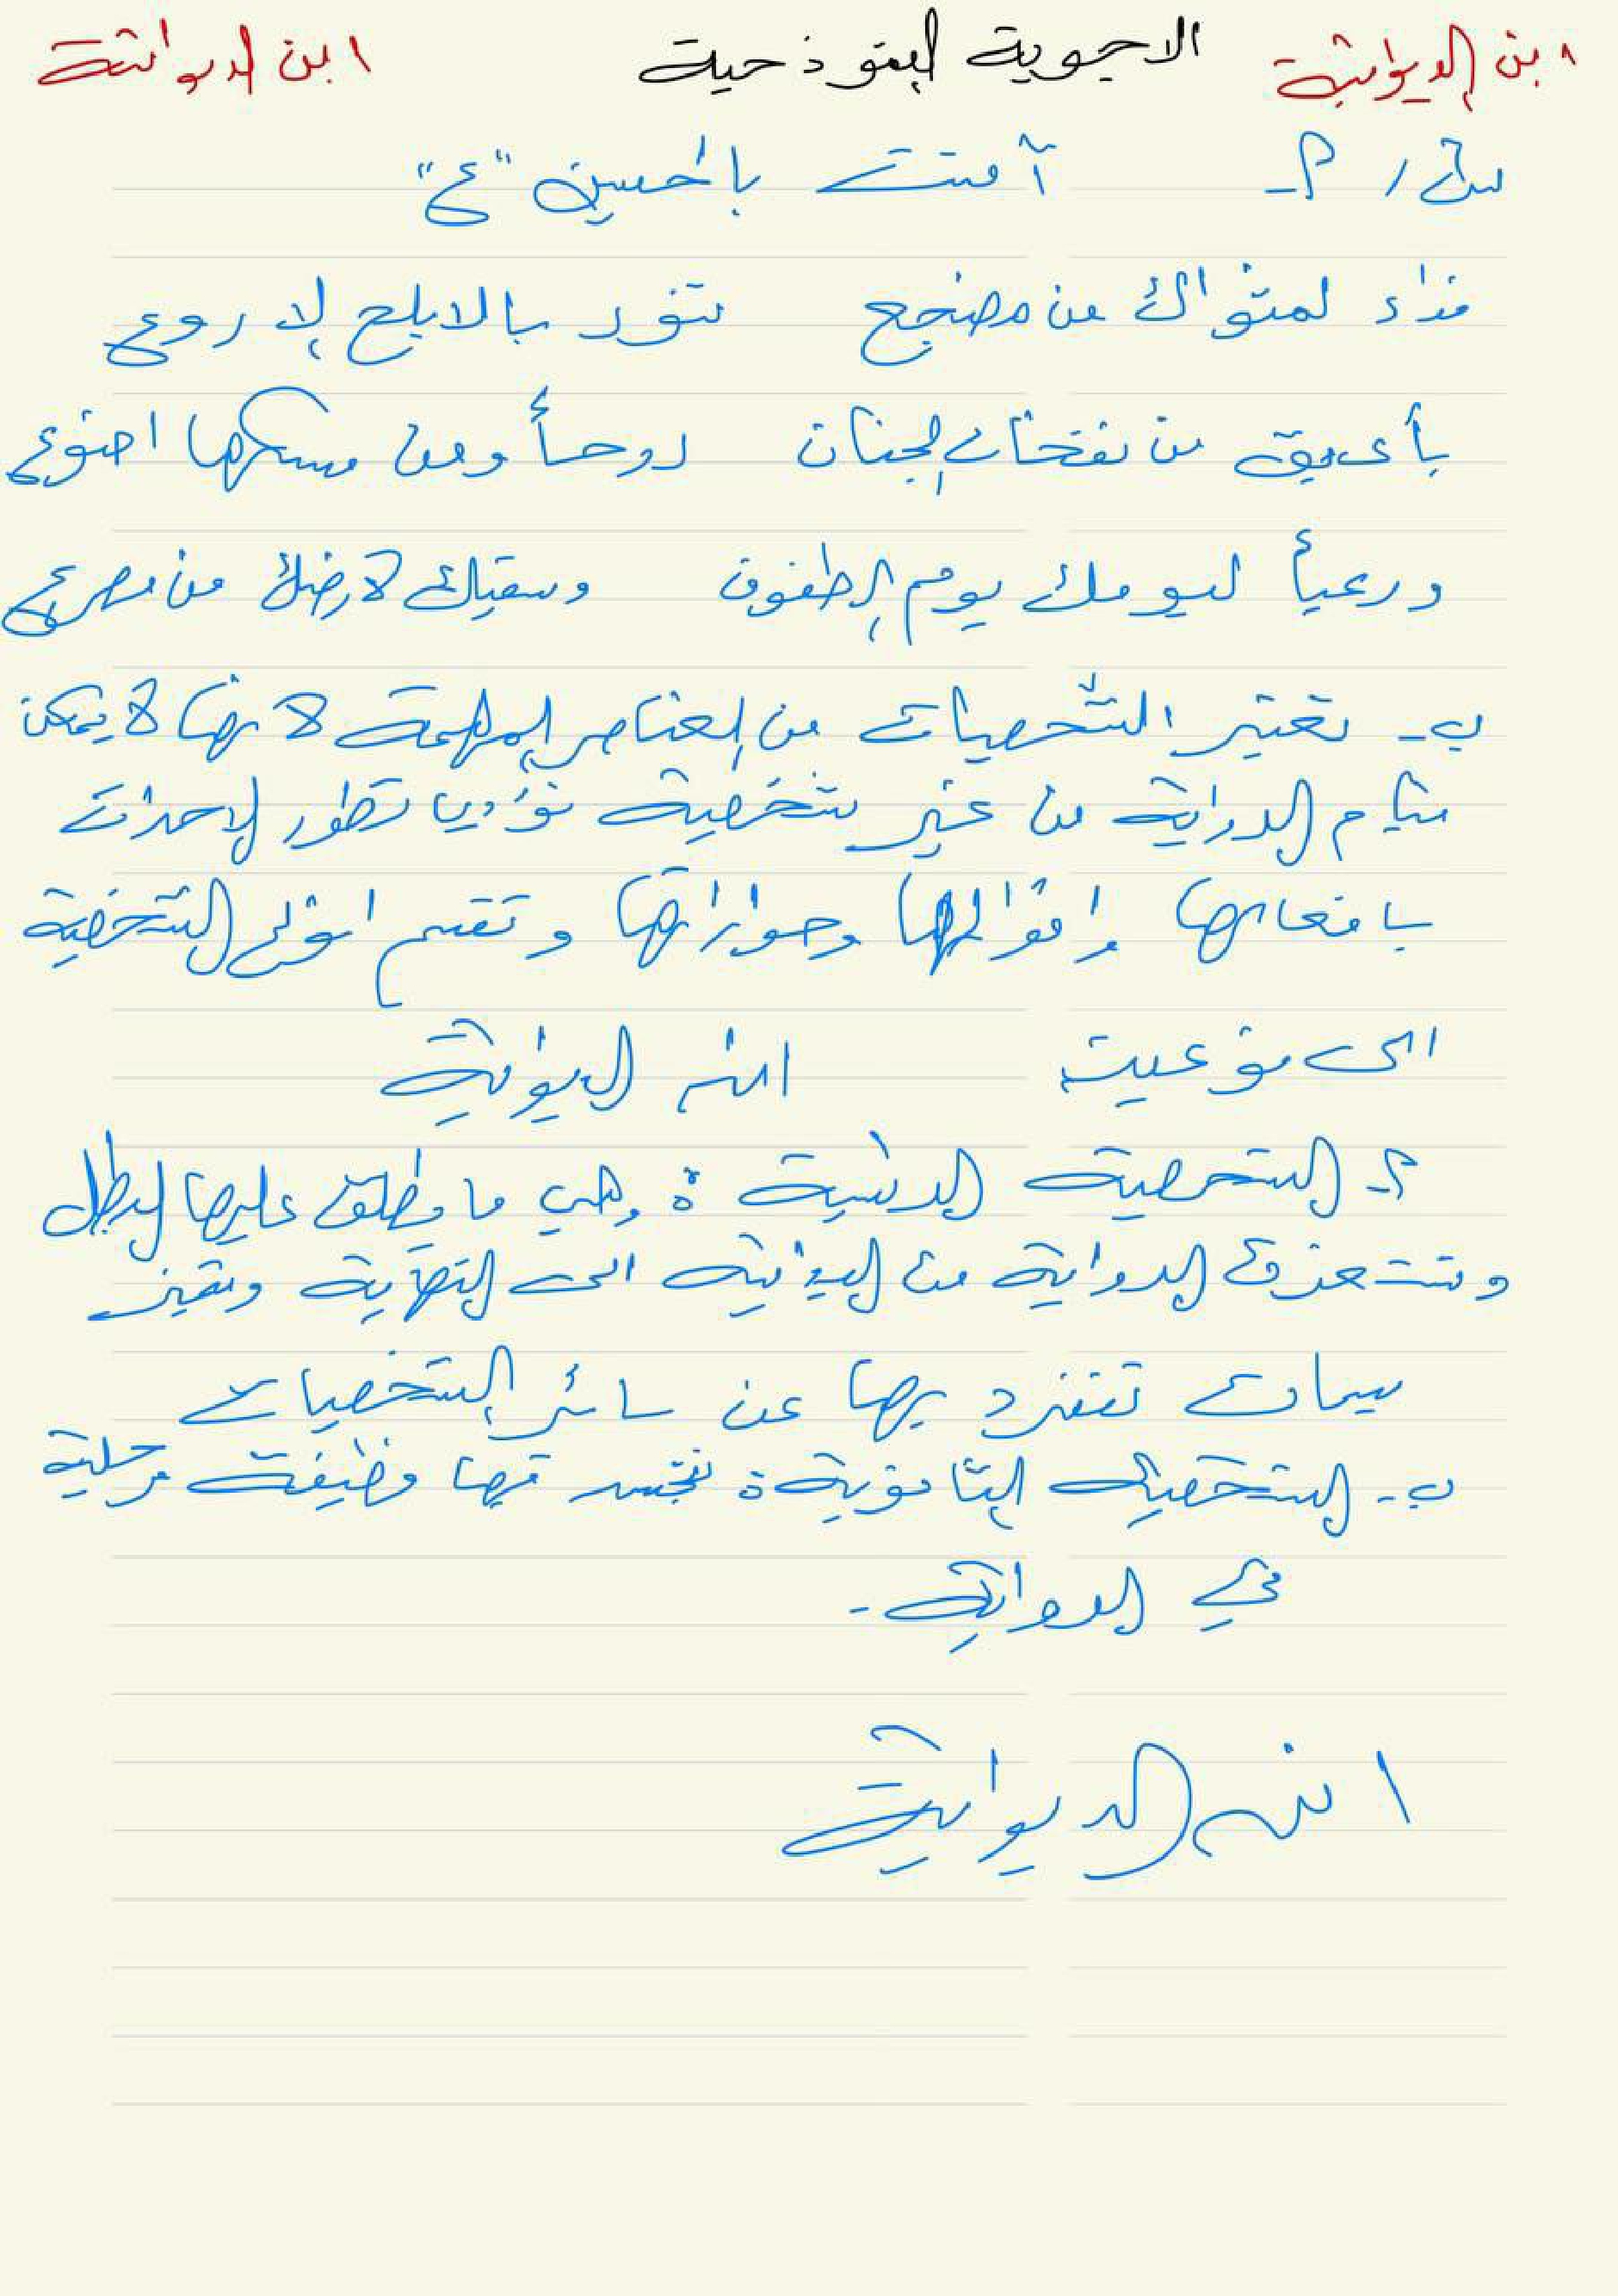 ابن الديوانية الاجوبة النموذجية ابن الديوانية
س٢ / أ- آمنت بالحسين "ع"
فداء لمثواك من مضجع تنور بالابلج الاروع
بأعبق من نفحات الجنان روحاً ومن مسكها اضوع
ورعياً ليومك يوم الطفوف وسقياً لارضك من مصرع
ب- تعتبر الشخصيات من العناصر المهمة لانها لا يمكن
قيام الرواية من غير شخصية تؤدي تطور الاحداث
بافعالها واقوالها وحواراتها وتقسم الشخصية
الى نوعين ابن الديوانية
أ- الشخصية الرئيسية : وهي ما يطلق عليها البطل
الرواية من البداية الى النهاية وتتميز
بسمات تنفرد بها عن سائر الشخصيات
ب- الشخصيات الثانوية : تجسد فيها وظيفة مرحلية
في الرواية .
ابن الديوانية